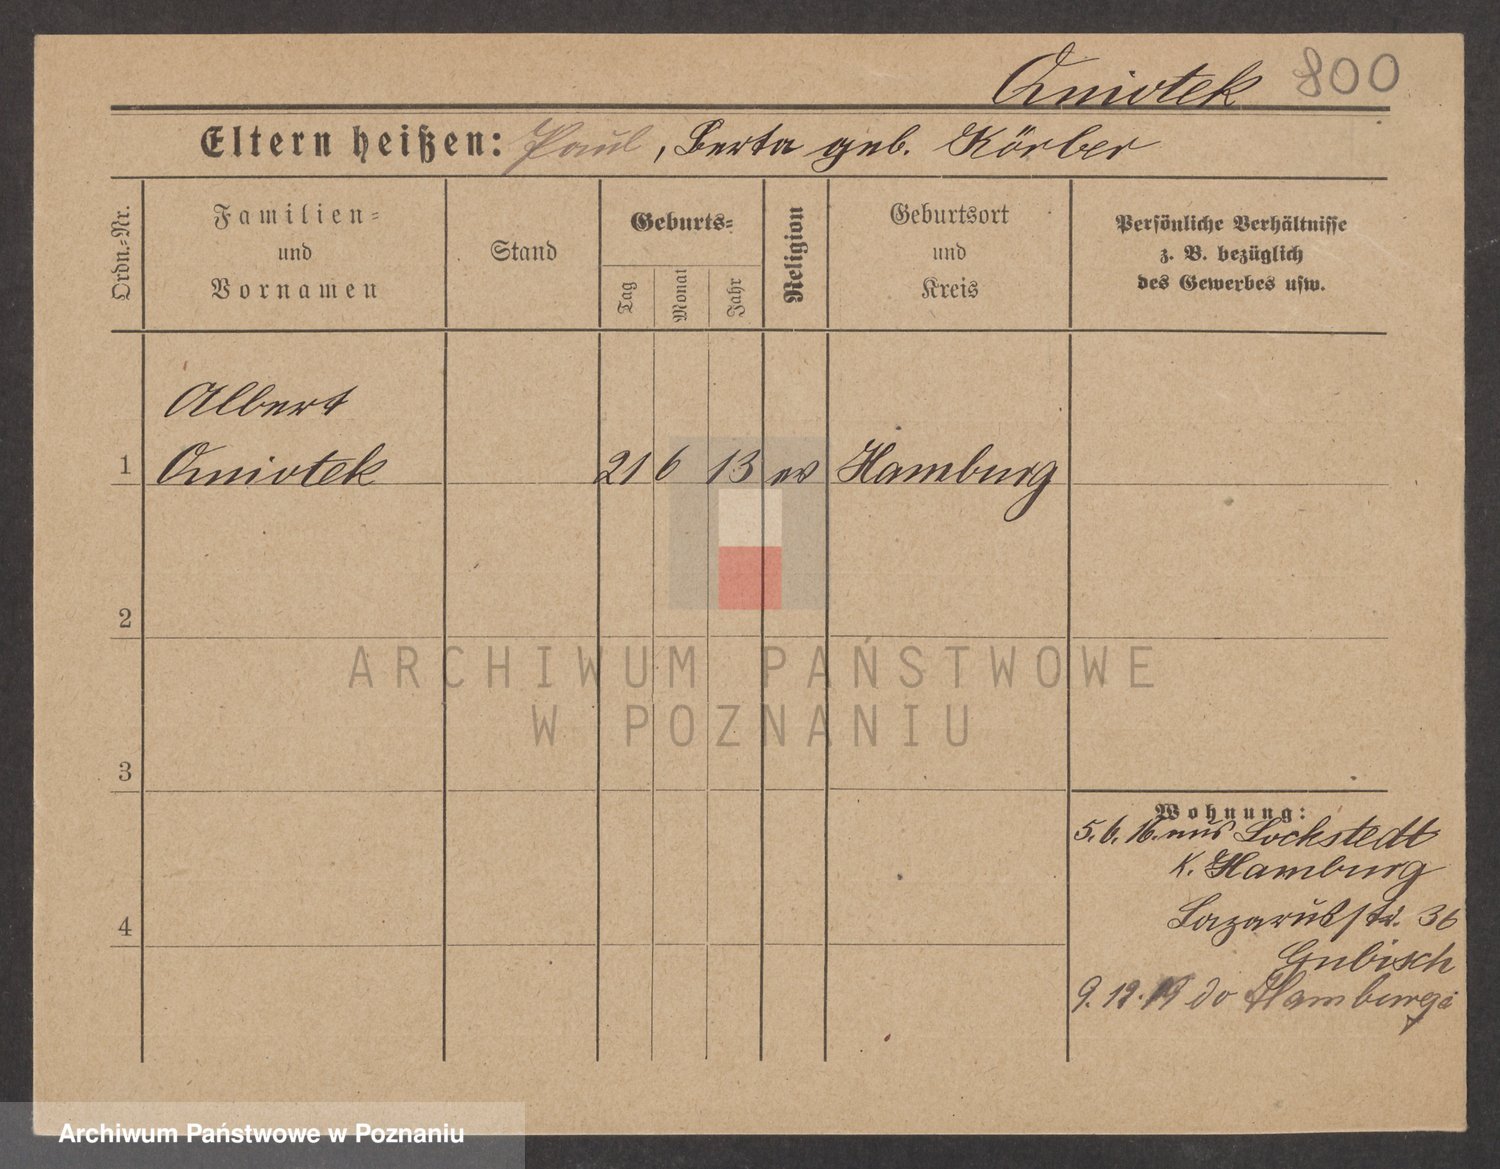 Omiotek 800
Eltern heißen: Paul, Berta geb. Körber
Ordn.-Nr.
Familien-
und
Vornamen
Stand
Geburts-
Tag
Monat
Jahr
Religion
Geburtsort
und
Kreis
Persönliche Verhältnisse
z. B. bezüglich
des Gewerbes usw.
Albert
1 Omiotek 21 6 13 ev Hamburg
2
ARCHIWUM PAŃSTWOWE
W POZNANIU
3
Wohnung:
5.6.16. aus Lockstedt
K. Hamburg
Lazarusstr. 36
4
Gubisch
9.12.19 do Hamburga
Archiwum Państwowe w Poznaniu